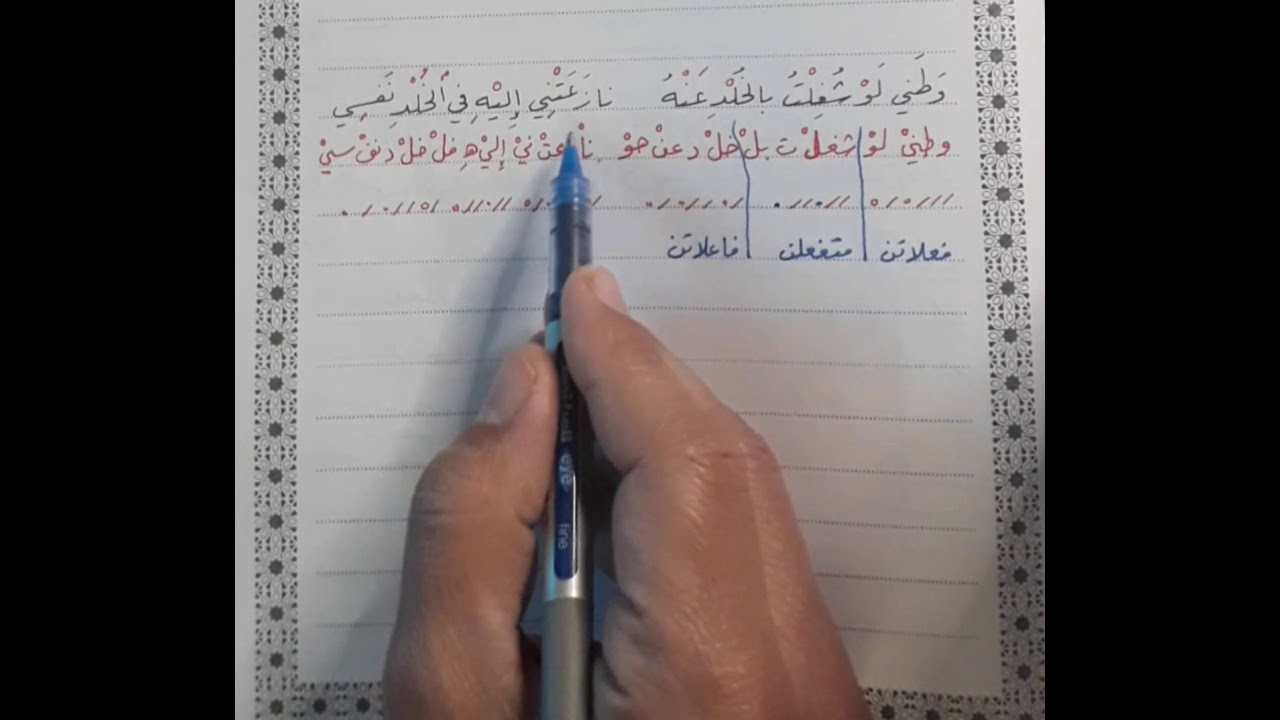 وَطَني لَوْ شُغِلْتُ بالخُلْدِ عَنْهُ نازَعَتْنِي إِلَيْهِ فِي اُلخُلْدِ نَفسِي
وطنيْ لوْ شغلْ ت بلْ خلْ د عنْ هوْ ناْ عتْ نيْ إليْ هِ فلْ خلْ د نفْ سيْ
فعلاتن متفعلن فاعلاتن
eye
fine